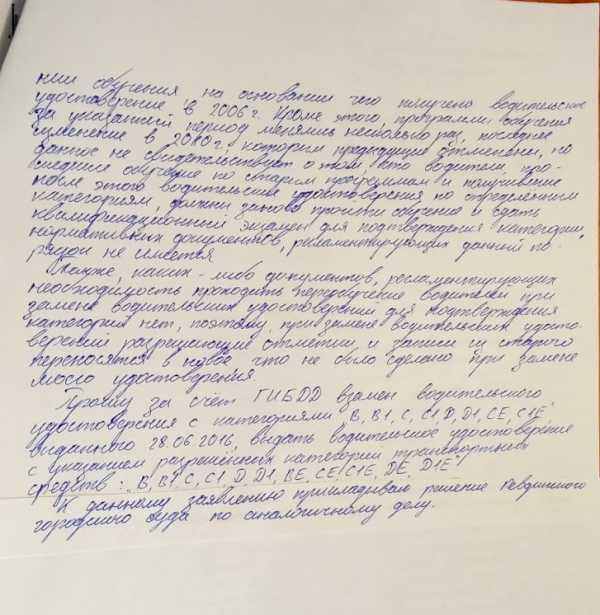 нии обучения, на основании чего получено водительское
удостоверение в 2006 г. Кроме этого, программы обучения
за указанный период менялись несколько раз, последнее
изменение в 2010 г., которым предыдущие отменены, но
данное не свидетельствует о том, что водители, про-
шедшие обучение по старым программам и получившие
после этого водительские удостоверения по определенным
категориям, должны заново пройти обучение и сдать
квалификационный экзамен для подтверждения категории,
нормативных документов, регламентирующих данный по-
рядок не имеется.
Также, каких-либо документов, регламентирующих
необходимость проходить переобучение водителей при
замене водительских удостоверений для подтверждения
категорий нет, поэтому, при замене водительских удосто-
верений разрешающие отметки и записи из старого
переносятся в новое, что не было сделано при замене
моего удостоверения.
Прошу за счет ГИБДД взамен водительского
удостоверения с категориями "B, B1, C, C1, D, D1, CE, C1E",
выданного 28.06.2016, выдать водительское удостоверение
с указанием разрешенных категорий транспортных
средств: "B, B1, C, C1, D, D1, BE, CE, C1E, DE, D1E".
К данному заявлению прикладываю решение Ревдинского
городского суда по аналогичному делу.